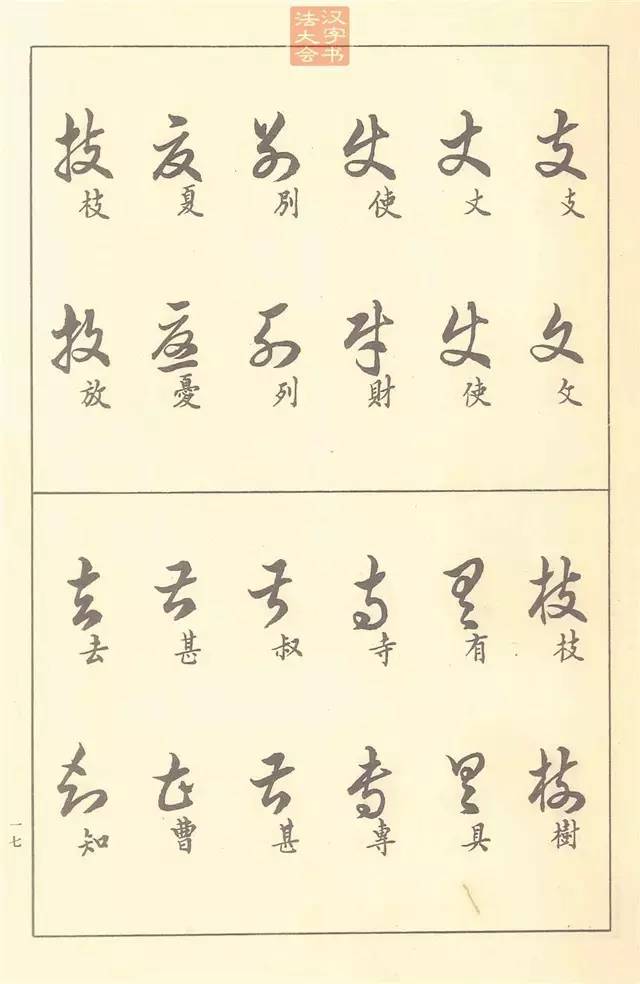 汉字书
法大会
支 攵
丈 使
使 財
別 列
夏 憂
枝 放
枝 樹
有 具
寺 專
叔 甚
甚 曹
去 知
一七